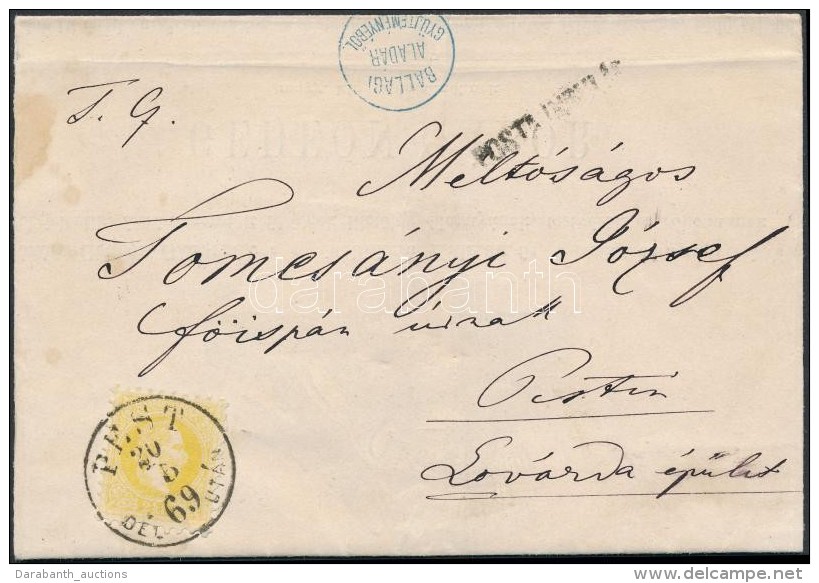 BALLAGI
ALADÁR
GYÜJTEMÉNYÉBŐL
POSTA
T. G.
Meltóságos
Tomcsányi József
főispán úrnak
Pestin
Lovárda épület
PEST
20
5
69
DÉL UTÁN
darabanth
Darabanth_auctions
delcampe.net